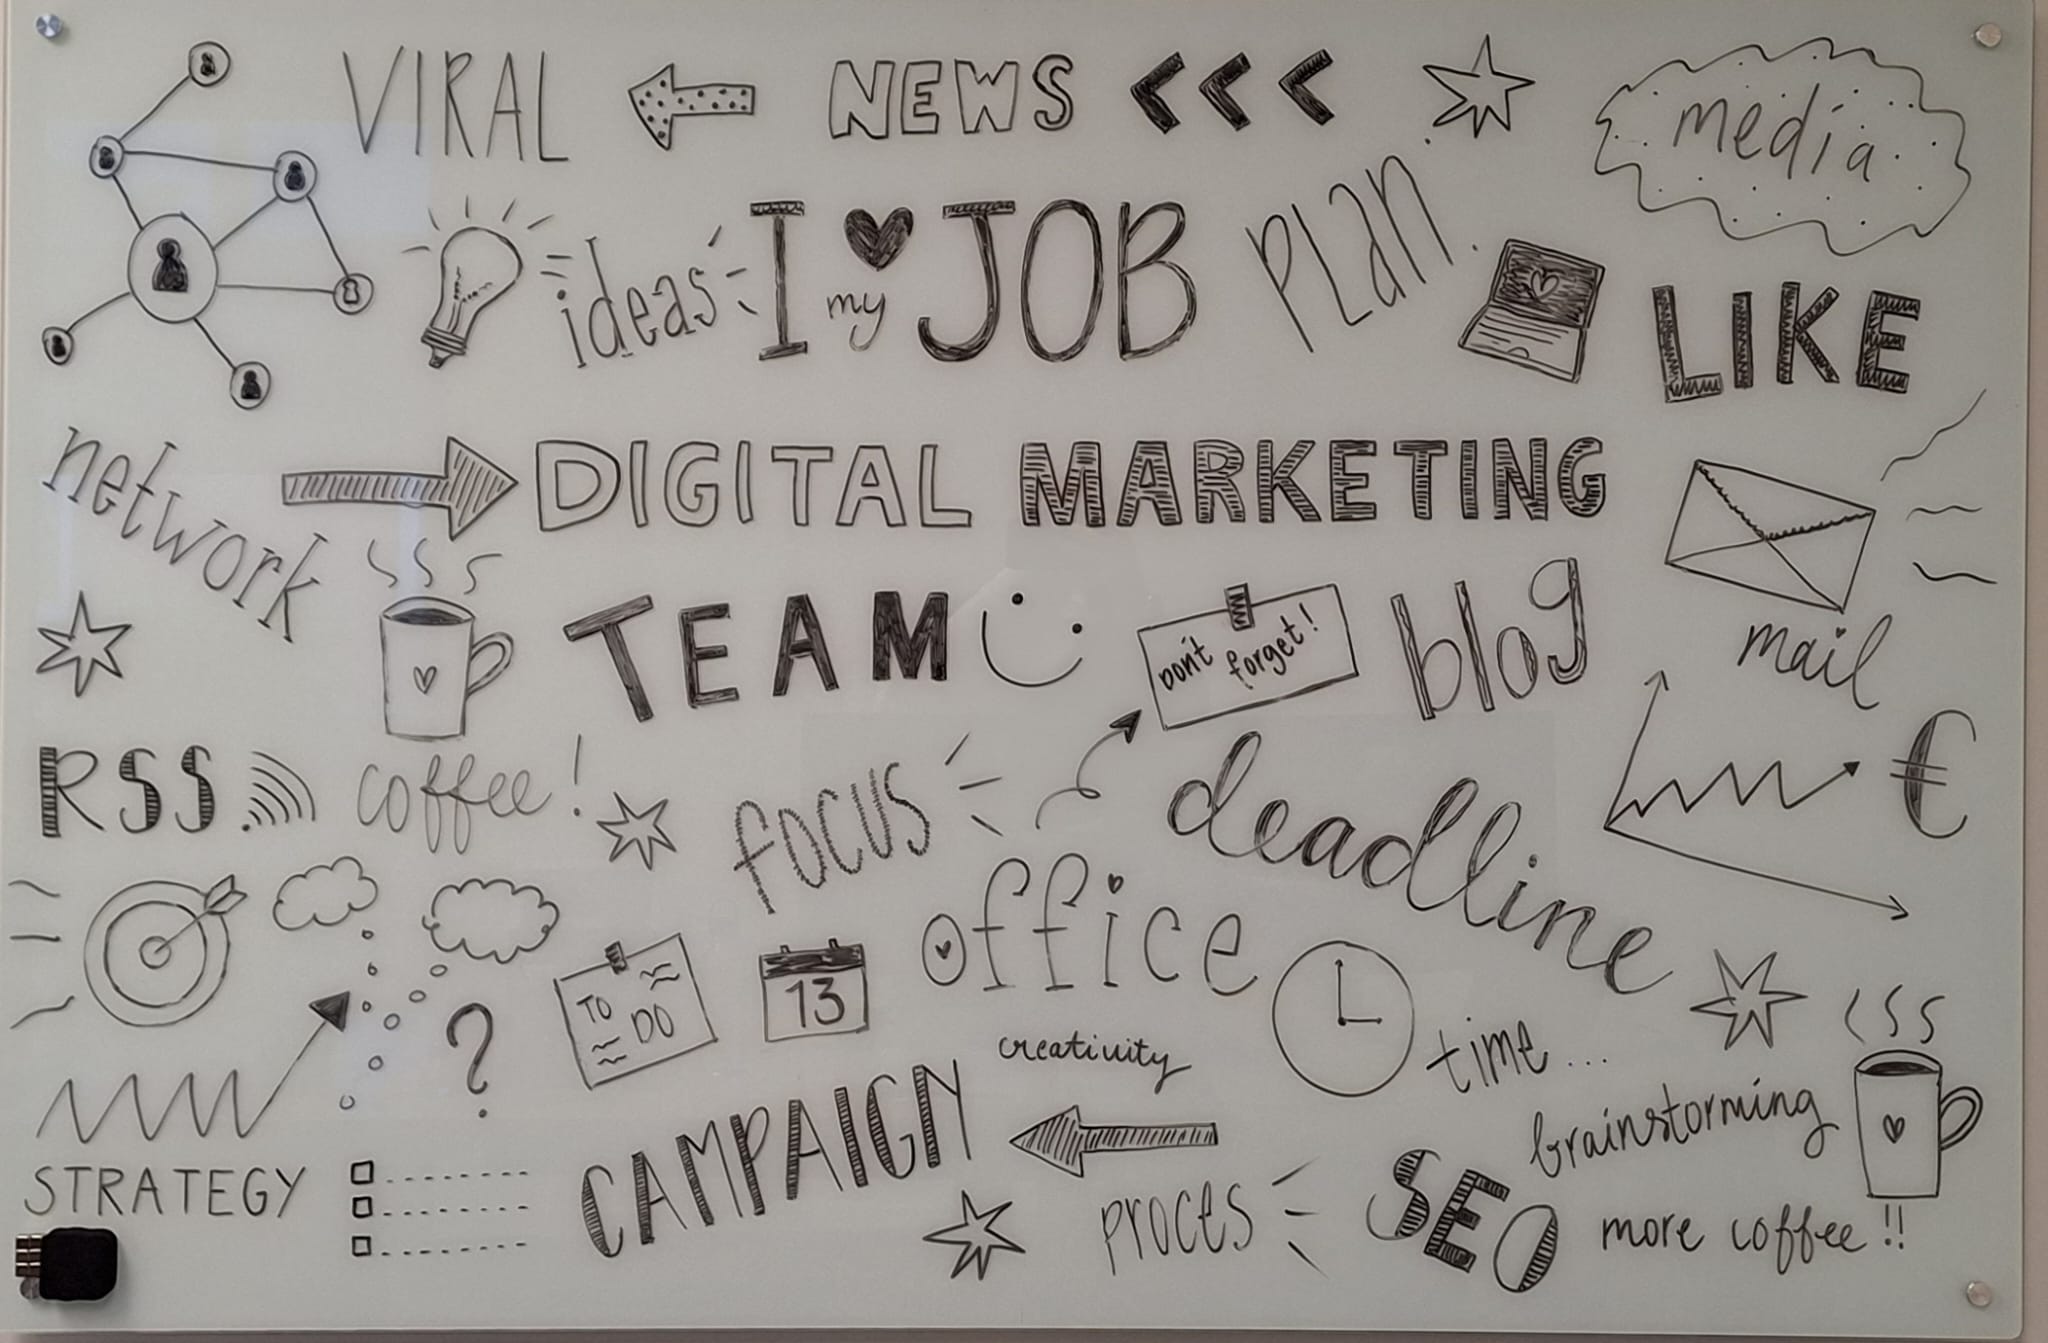 VIRAL
NEWS <<<
media
ideas
I ♥ my JOB
PLan
LIKE
network
DIGITAL MARKETING
TEAM
Don't forget!
blog
mail
RSS
coffee!
focus
deadline
€
office
TO DO
13
?
creativity
time...
brainstorming
CAMPAIGN
STRATEGY
proces
SEO
more coffee!!